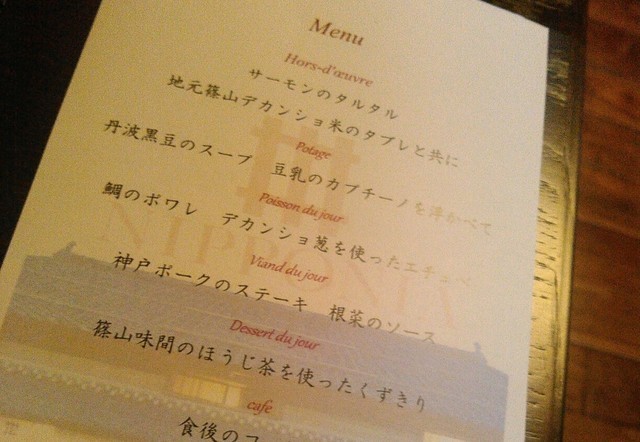 Menu
Hors-d'œuvre
サーモンのタルタル
地元篠山デカンショ米のタブレと共に
Potage
丹波黒豆のスープ 豆乳のカプチーノを浮かべて
Poisson du jour
鯛のポワレ デカンショ葱を使ったエチュベ
Viand du jour
神戸ポークのステーキ 根菜のソース
Dessert du jour
篠山味間のほうじ茶を使ったくずきり
cafe
食後のコ
NIPPONIA